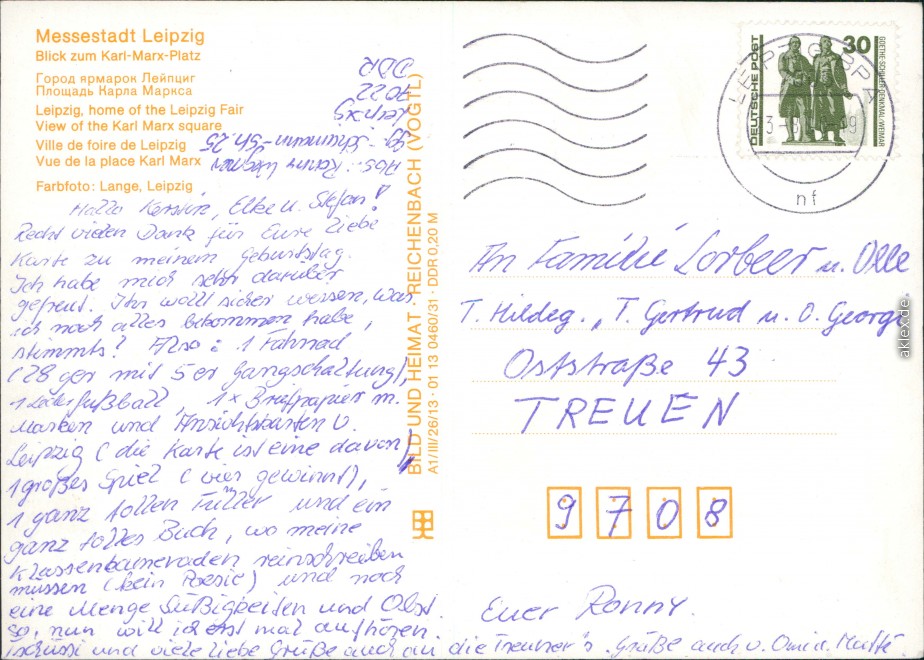 Messestadt Leipzig
Blick zum Karl-Marx-Platz
Город ярмарок Лейпциг
Площадь Карла Маркса
Leipzig, home of the Leipzig Fair
View of the Karl Marx square
Ville de foire de Leipzig
Vue de la place Karl Marx
Farbfoto: Lange, Leipzig
Abs.: Ronny
Leipzig
7022
DDR
Hallo Kerstin, Elke u. Stefan!
Recht vielen Dank für Eure liebe
Karte zu meinem Geburtstag.
Ich habe mich sehr darüber
gefreut. Ihr wollt sicher wissen, was
ich noch alles bekommen habe,
stimmts? Also: 1 Fahrrad
(28 ger mit 5 er Gangschaltung),
1 Lederfußball, 1x Briefpapier m.
Marken und Ansichtskarten v.
Leipzig (die Karte ist eine davon)
1 großes Spiel (vier gewinnt),
1 ganz tollen Füller und ein
ganz tolles Buch, wo meine
Klassenkameraden reinschreiben
müssen (kein Poesie) und noch
eine Menge Süßigkeiten und Obst.
So, nun will ich erst mal aufhören.
Tschüssi und viele liebe Grüße auch an die Treuner's. Grüße auch v. Omi u. Mutti.
Euer Ronny.
BILD UND HEIMAT · REICHENBACH (VOGTL)
A1/III/26/13 · 01 13 0460/31 · DDR 0,20 M
DEUTSCHE POST
30
GOETHE-SCHILLER-DENKMAL/WEIMAR
LEIPZIG BPA
nf
An Familie Lorbeer u. Olle
T. Hildeg., T. Gertrud u. O. Georg
Oststraße 43
TREUEN
9708
aklex.de